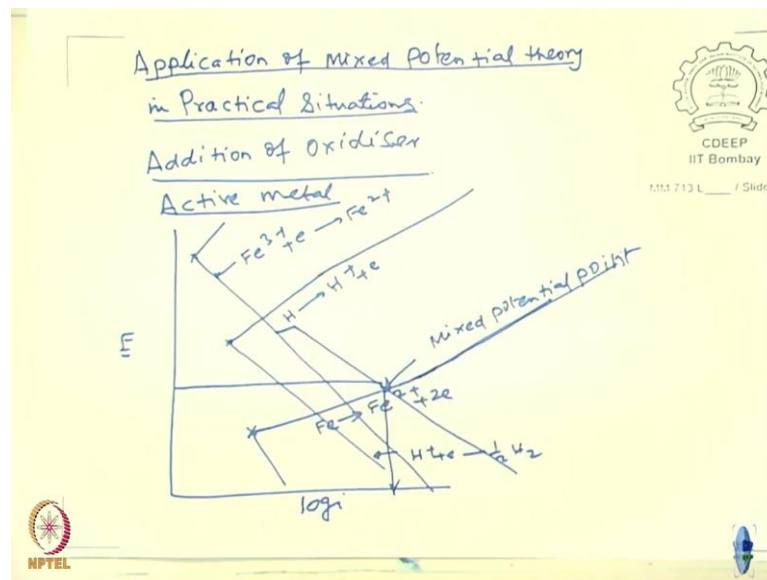 Application of Mixed Potential theory
in Practical Situations.
Addition of Oxidiser
Active metal
CDEEP
IIT Bombay
MM 713 L____ / Slide
Fe³⁺+e → Fe²⁺
H → H⁺+e
Mixed potential point
E
Fe → Fe²⁺+2e
H⁺+e → ½H₂
logi
NPTEL